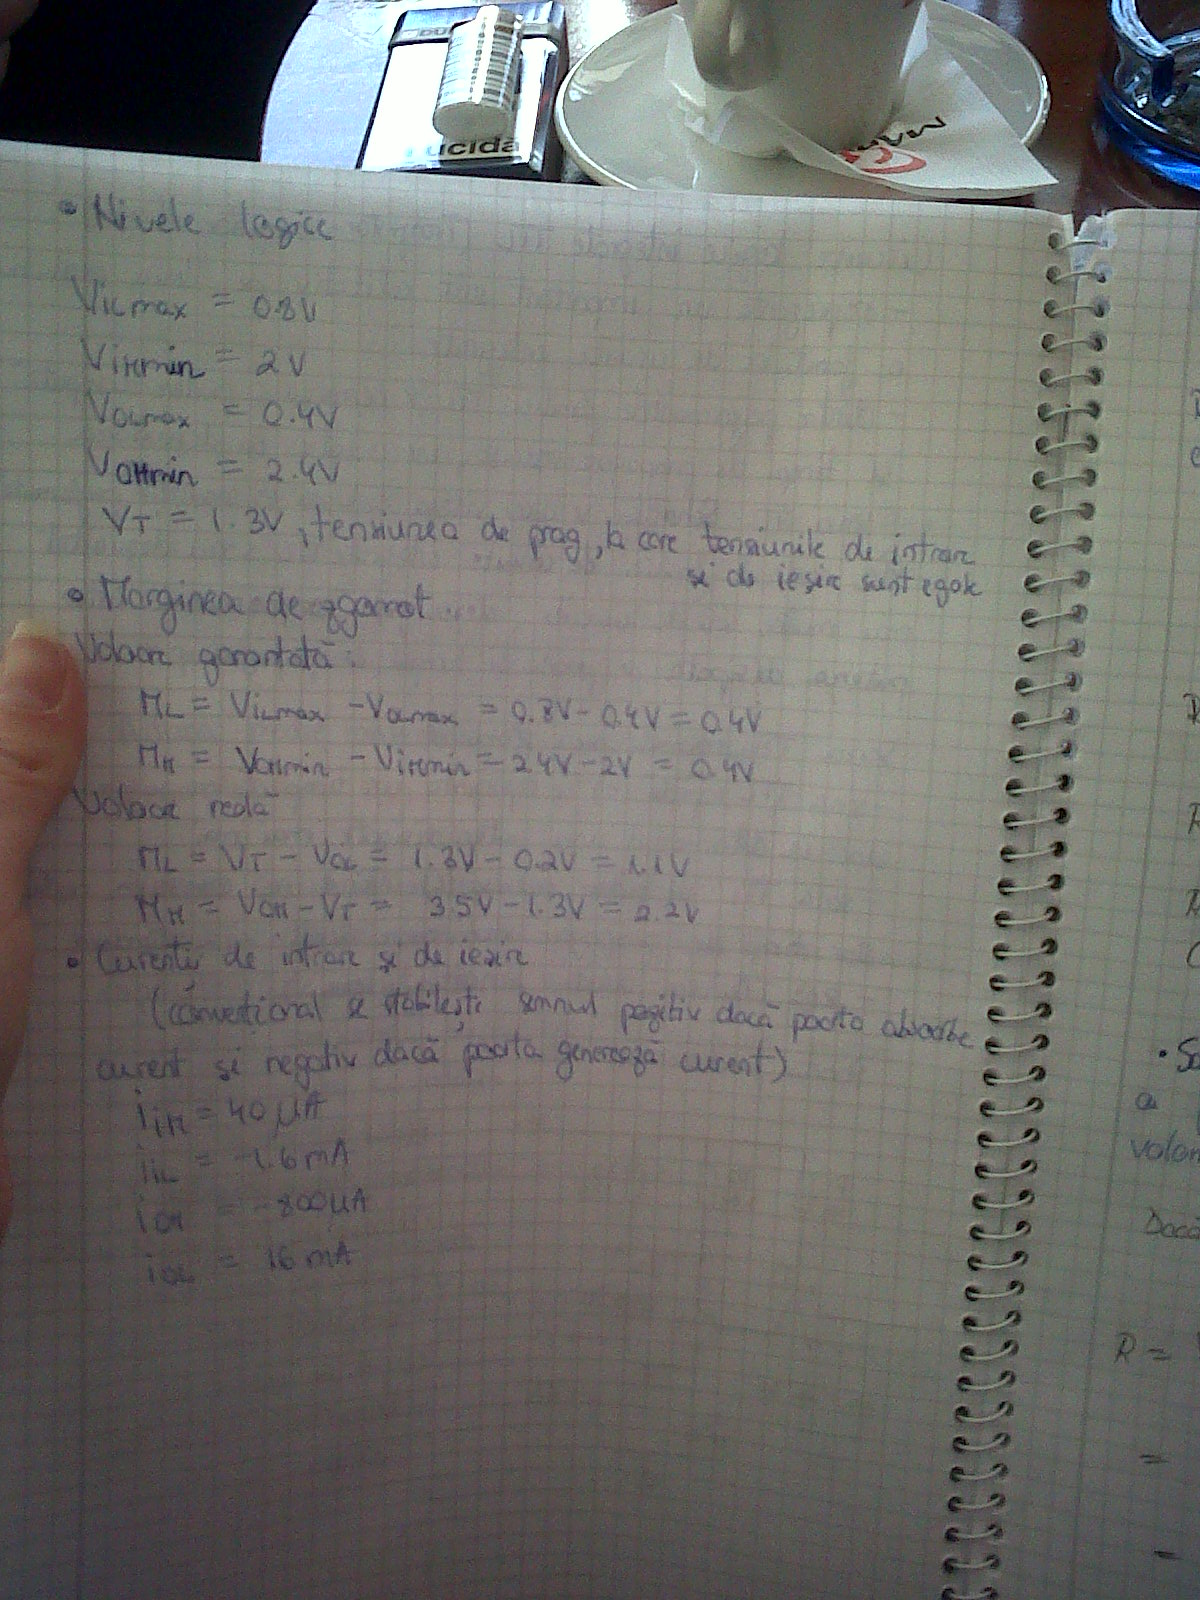 DU
Lucida
• Nivele logice
VILmax = 0.8V
VIHmin = 2V
VOLmax = 0.4V
VOHmin = 2.4V
VT = 1.3V, tensiunea de prag, la care tensiunile de intrare
și de ieșire sunt egale
• Marginea de zgomot
Valoare garantată:
ML = VILmax - VOLmax = 0.8V - 0.4V = 0.4V
MH = VOHmin - VIHmin = 2.4V - 2V = 0.4V
Valoare reală
ML = VT - VOL = 1.3V - 0.2V = 1.1V
MH = VOH - VT = 3.5V - 1.3V = 2.2V
• Curenți de intrare și de ieșire
(convențional se stabilești semnul pozitiv dacă poarta absoarbe
curent și negativ dacă poarta generează curent)
iIH = 40 μA
iIL = -1.6 mA
iOH = -800 μA
iOL = 16 mA
a
Dacă
R =
=
-